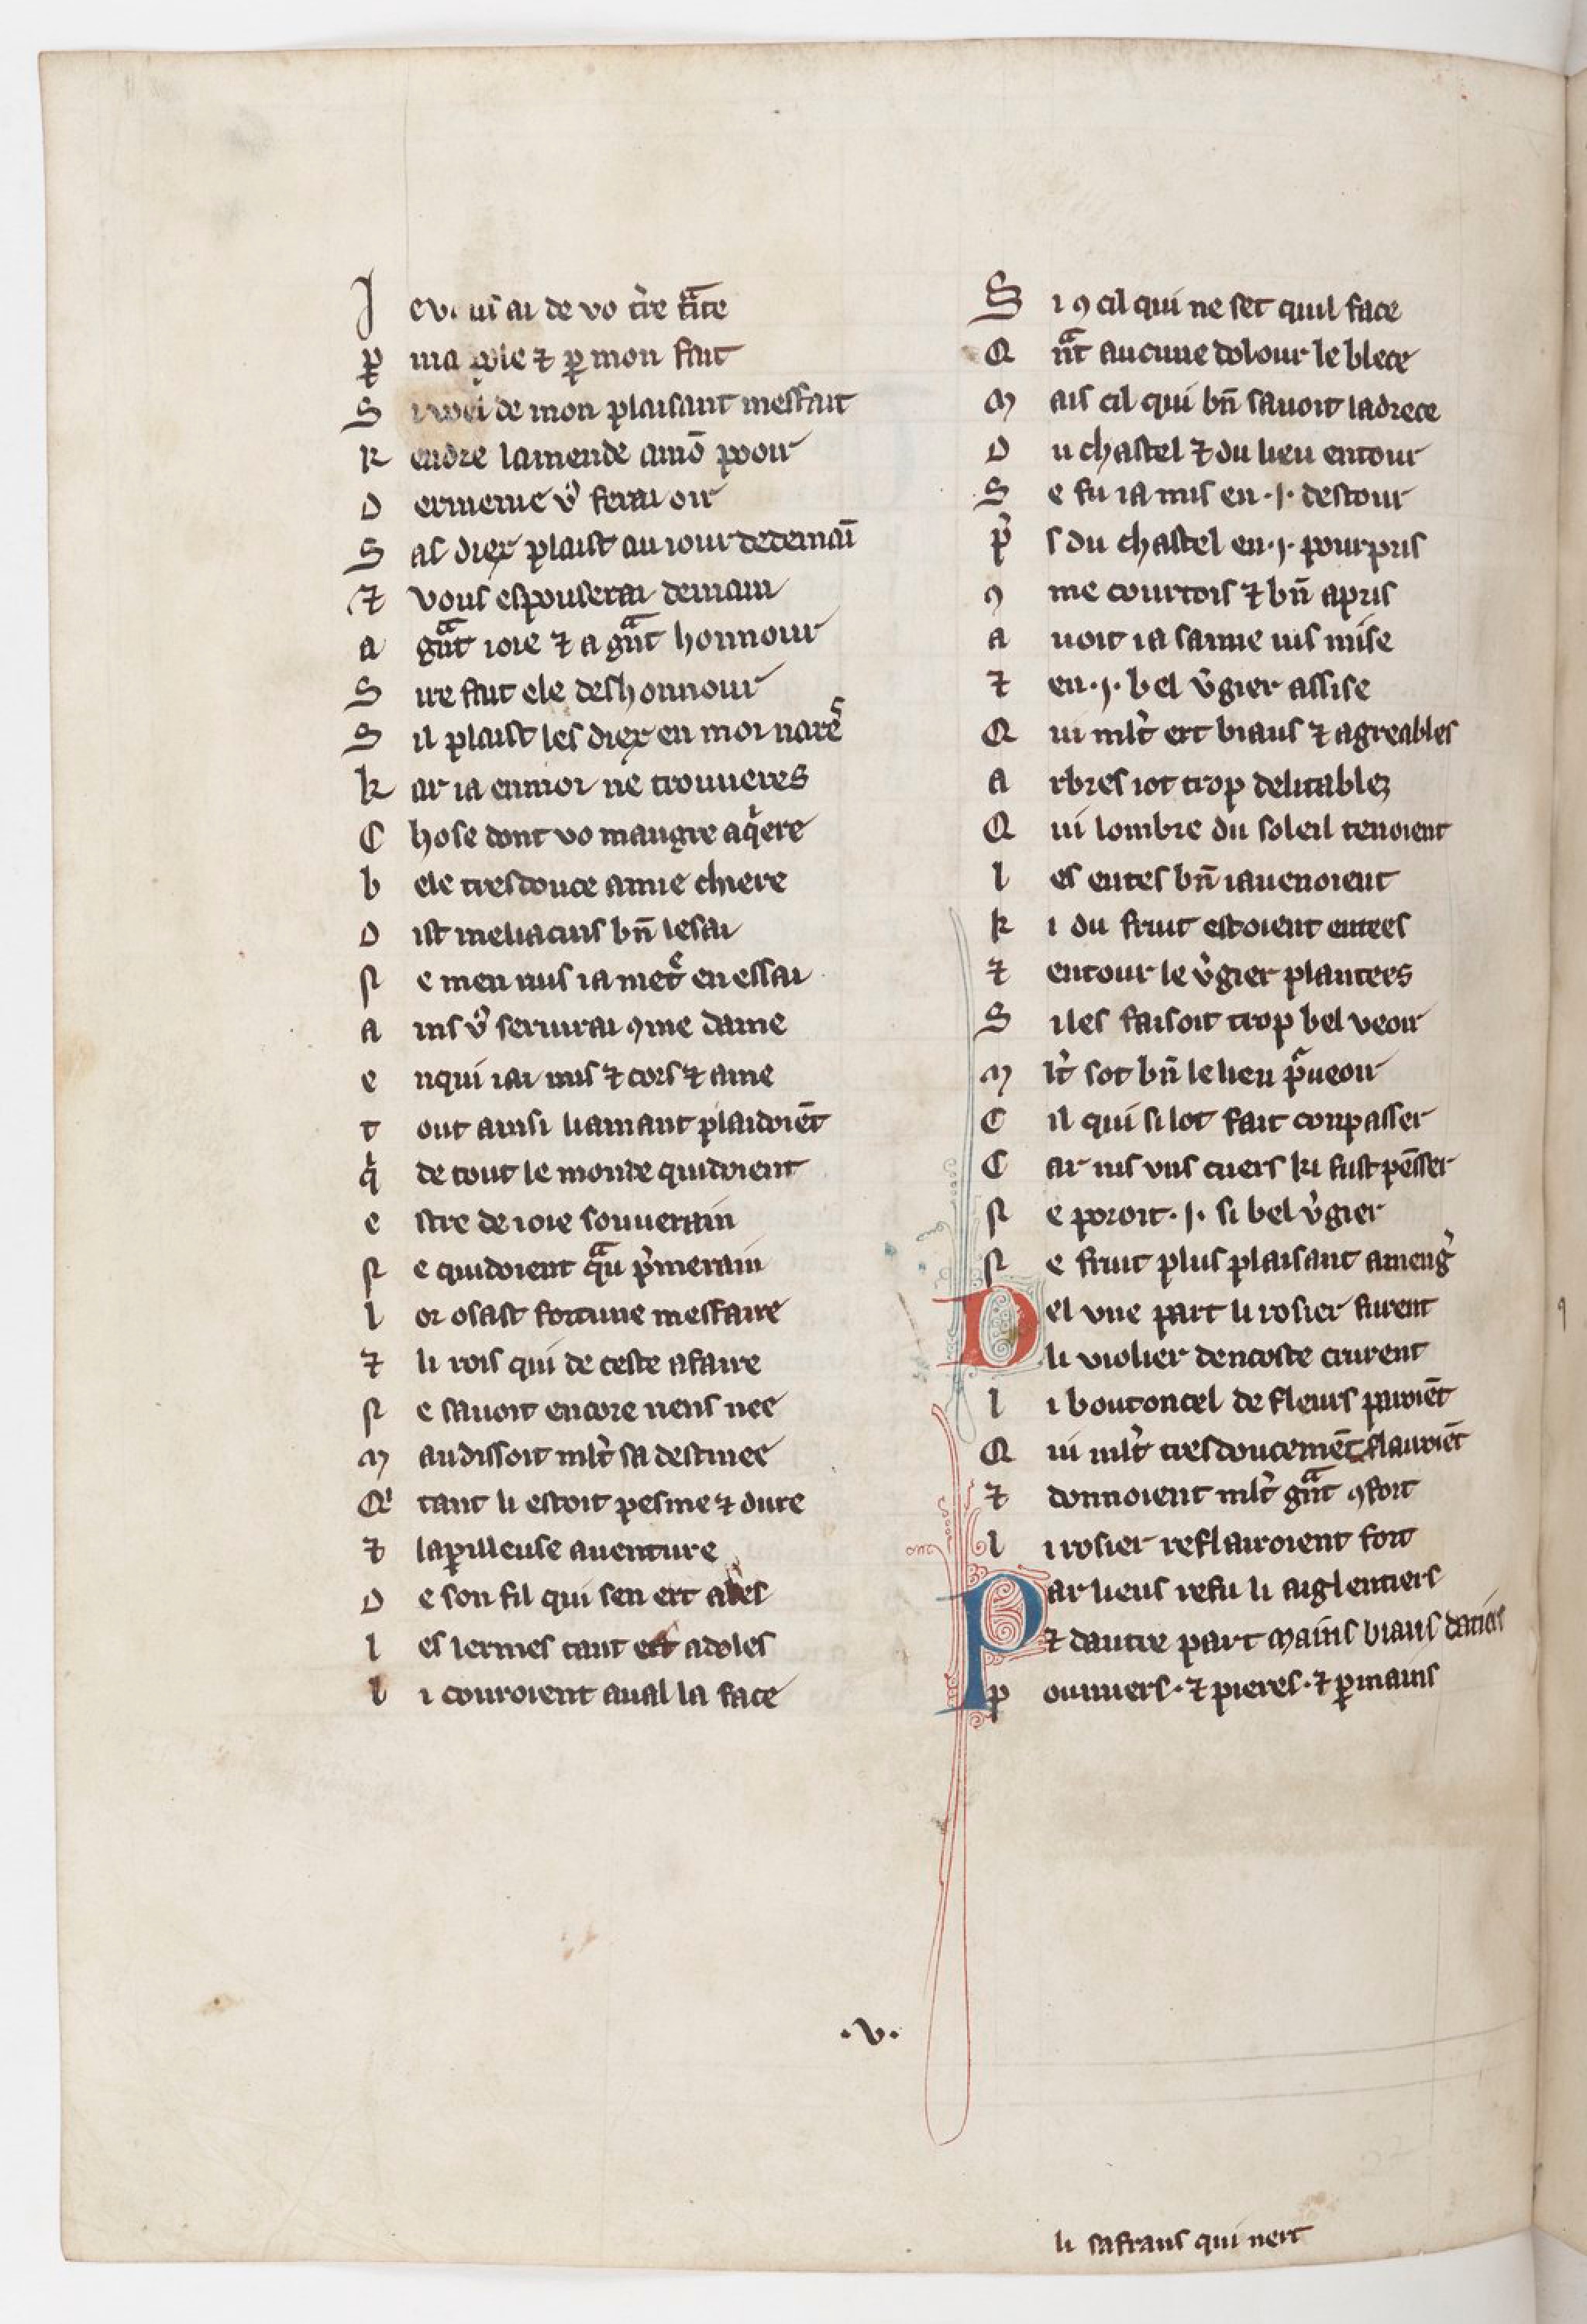 J e vous ai de vo tr̃e traite
ꝑ ma ꝑole ⁊ ꝑ mon fait
S de mon plaisant messait
R endre lamende a mõ pooir
D ermenie vꝰ ferai oir
S as diex plaist au iour dedemaĩ
⁊ vous espouserai demain
a grãt ioie ⁊ a grãt honnour
S ire fait ele deshonnour
S il plaist les diex en moi nares
k ar ia en moi ne trouueres
C hose dont vo maugre aqiere
b ele tres douce amie chiere
D ist meliacins bñ le sai
N e men nus ia metre en essai
a ins vꝰ seruirai ꝯme dame
e n qui iai mis ⁊ cors ⁊ ame
t out ainsi li amant plaidoiẽt
q̃ de tout le monde quidoient
e stre de ioie souuerain
N e quidoient qua pimerain
l or osast fortune mesfaire
⁊ li rois qui de ceste afaire
N e sauoit encore nens nee
M audissoit mlt̃ sa destinee
Q tant li estoit pesme ⁊ dure
⁊ la ꝑilleuse auenture
D e son fil qui sen ert ales
l es lermes tant ert adoles
l i couroient aual la face
S i ꝯ cil qui ne set quil face
Q nãt aucune dolour le blece
M ais cil qui bñ sauoit ladrece
D u chastel ⁊ du lieu entour
S e fu ia mis en .j. destour
p̃ s du chastel en .j. pourpris
ꝯ me courtois ⁊ bñ apris
a uoit ia samie uis mise
⁊ en .j. bel ṽgier assise
Q ui mlt̃ ert biaus ⁊ agreables
a rbres i ot trop delitablez
Q ui lombre du soleil tenoient
l es entes bñ i auenoient
k i du fruit estoient entees
⁊ entour le ṽgier plantees
S i les faisoit trop bel veoir
M lt̃ sot bñ le lieu pᷓueoir
C il qui si lot fait conpasser
C ar nis vns cuers ki fust pẽsser
N e poroit .j. si bel ṽgier
N e fruit plus plaisant a meng̃
Del vne part li rosier furent
li violier dencoste crurent
l i boutoncel de fleurs paroiẽt
Q ui mlt̃ tres doucemẽt flauroiẽt
⁊ donnoient mlt̃ grãt ꝯfort
l i rosier reflairoient fort
Par lieus refu li aiglentiers
⁊ dautre part mains biaus datiers
p oumiers . ⁊ pieres . ⁊ ꝑmains
.v.
li safrans qui nert